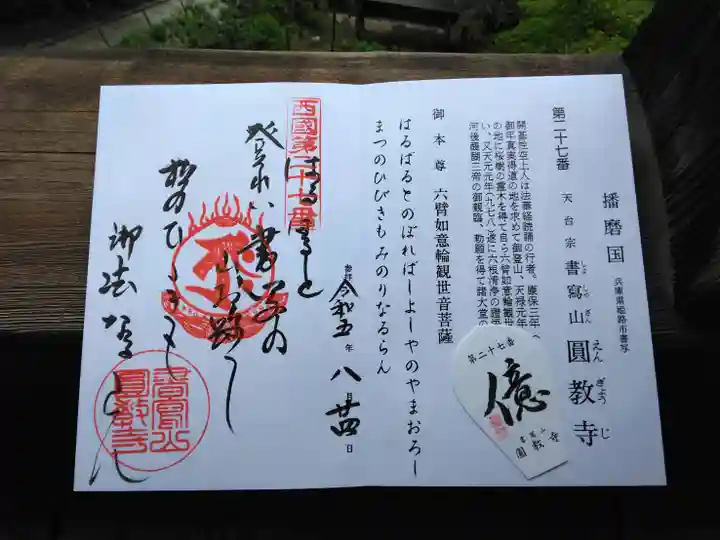 第二十七番
播磨国
兵庫県姫路市書写
天台宗 書寫山 圓教寺
しょ しゃ ざん えん ぎょう じ
開基性空上人は法華経読誦の行者。康保三年
御年真実得道の地を求めて御登山、天禄元年
の地に桜樹の霊木を得て自ら六臂如意輪観世
い、又天元元年(九七八)遂に六根清浄の證
河後醍醐三帝の御親臨、勅願を得て諸大堂の
御本尊 六臂如意輪観世音菩薩
はるばるとのぼればしよしやのやまおろし
まつのひびきもみのりなるらん
第二十七番
億
書寫山
圓教寺
参拝 令和五年 八月 廿四日
西國第二十七番
はるばると
登れば書写の
山お路し
松のひゞきも
御法なるらん
書寫山
圓教寺